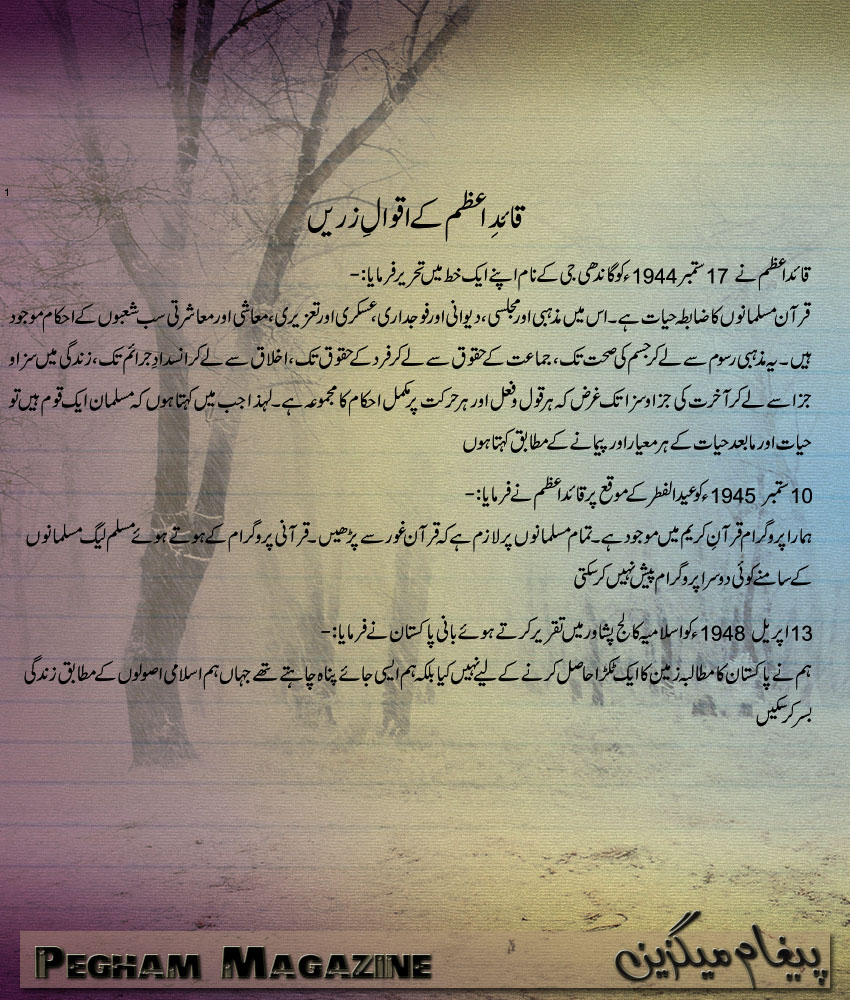 1
قائدِ اعظم کے اقوالِ زریں
قائد اعظم نے 17 ستمبر 1944ء کو گاندھی جی کے نام اپنے ایک خط میں تحریر فرمایا:-
قرآن مسلمانوں کا ضابطہ حیات ہے۔ اس میں مذہبی اور مجلسی، دیوانی اور فوجداری، عسکری اور تعزیری، معاشی اور معاشرتی سب شعبوں کے احکام موجود
ہیں۔ یہ مذہبی رسوم سے لے کر جسم کی صحت تک، جماعت کے حقوق سے لے کر فرد کے حقوق تک، اخلاق سے لے کر انسدادِ جرائم تک، زندگی میں سزا و
جزا سے لے کر آخرت کی جزا و سزا تک غرض کہ ہر قول و فعل اور ہر حرکت پر مکمل احکام کا مجموعہ ہے۔ لہذا جب میں کہتا ہوں کہ مسلمان ایک قوم ہیں تو
حیات اور مابعد حیات کے ہر معیار اور پیمانے کے مطابق کہتا ہوں
10 ستمبر 1945ء کو عید الفطر کے موقع پر قائد اعظم نے فرمایا:-
ہمارا پروگرام قرآنِ کریم میں موجود ہے۔ تمام مسلمانوں پر لازم ہے کہ قرآن غور سے پڑھیں۔ قرآنی پروگرام کے ہوتے ہوئے مسلم لیگ مسلمانوں
کے سامنے کوئی دوسرا پروگرام پیش نہیں کر سکتی
13 اپریل 1948ء کو اسلامیہ کالج پشاور میں تقریر کرتے ہوئے بانی پاکستان نے فرمایا:-
ہم نے پاکستان کا مطالبہ زمین کا ایک ٹکڑا حاصل کرنے کے لیے نہیں کیا بلکہ ہم ایسی جائے پناہ چاہتے تھے جہاں ہم اسلامی اصولوں کے مطابق زندگی
بسر کر سکیں
PEGHAM MAGAZINE
پیغام میگزین